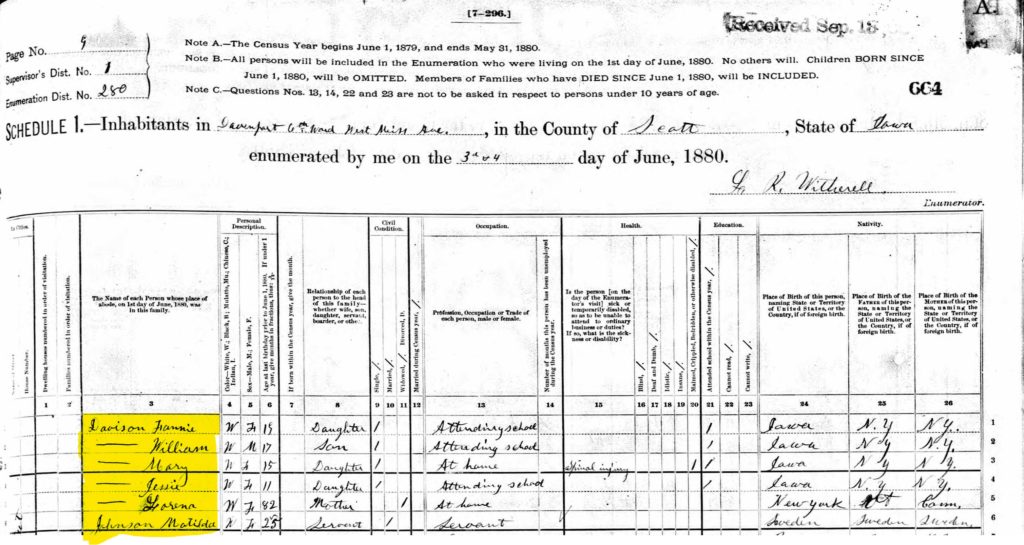 [7-296.]
Received Sep. 15
Page No. 9
Supervisor's Dist. No. 1
Enumeration Dist. No. 280
Note A.—The Census Year begins June 1, 1879, and ends May 31, 1880.
Note B.—All persons will be included in the Enumeration who were living on the 1st day of June, 1880. No others will. Children BORN SINCE
June 1, 1880, will be OMITTED. Members of Families who have DIED SINCE June 1, 1880, will be INCLUDED.
Note C.—Questions Nos. 13, 14, 22 and 23 are not to be asked in respect to persons under 10 years of age.
664
SCHEDULE 1.—Inhabitants in Davenport 6th Ward West Miss Ave., in the County of Scott, State of Iowa
enumerated by me on the 3rd 04 day of June, 1880.
R. Witherell.
Enumerator.
Personal Description.
Civil Condition.
Occupation.
Health.
Education.
Nativity.
House Number.
Dwelling houses numbered in order of visitation.
Families numbered in order of visitation.
The Name of each Person whose place of abode, on 1st day of June, 1880, was in this family.
Color—White, W.; Black, B.; Mulatto, Mu.; Chinese, C.; Indian, I.
Sex—Male, M.; Female, F.
Age at last birthday prior to June 1, 1880. If under 1 year, give months in fractions, thus:
If born within the Census year, give the month.
Relationship of each person to the head of this family—whether wife, son, daughter, servant, boarder, or other.
Single, /
Married, /
Widowed, / Divorced, D.
Married during Census year, /
Profession, Occupation or Trade of each person, male or female.
Number of months this person has been unemployed during the Census year.
Is the person [on the day of the Enumerator's visit] sick or temporarily disabled, so as to be unable to attend to ordinary business or duties? If so, what is the sickness or disability?
Blind, /
Deaf and Dumb, /
Idiotic, /
Insane, /
Maimed, Crippled, Bedridden, or otherwise disabled, /
Attended school within the Census year, /
Cannot read, /
Cannot write, /
Place of Birth of this person, naming State or Territory of United States, or the Country, if of foreign birth.
Place of Birth of the FATHER of this person, naming the State or Territory of United States, or the Country, if of foreign birth.
Place of Birth of the MOTHER of this person, naming the State or Territory of United States, or the Country, if of foreign birth.
1 2 3 4 5 6 7 8 9 10 11 12 13 14 15 16 17 18 19 20 21 22 23 24 25 26
Davison Fannie W F 19 Daughter / Attending school / Iowa N.Y N.Y. 1
— William W M 17 Son / Attending school / Iowa N Y N.Y. 2
— Mary W F 15 Daughter / At home spinal injury / / Iowa N Y N.Y. 3
— Jessie W F 11 Daughter / Attending school / Iowa N.Y N Y. 4
— Lorena W F 82 Mother / At home New York Conn. 5
Johnson Matilda W F 25 Servant / Servant Sweden Sweden Sweden. 6